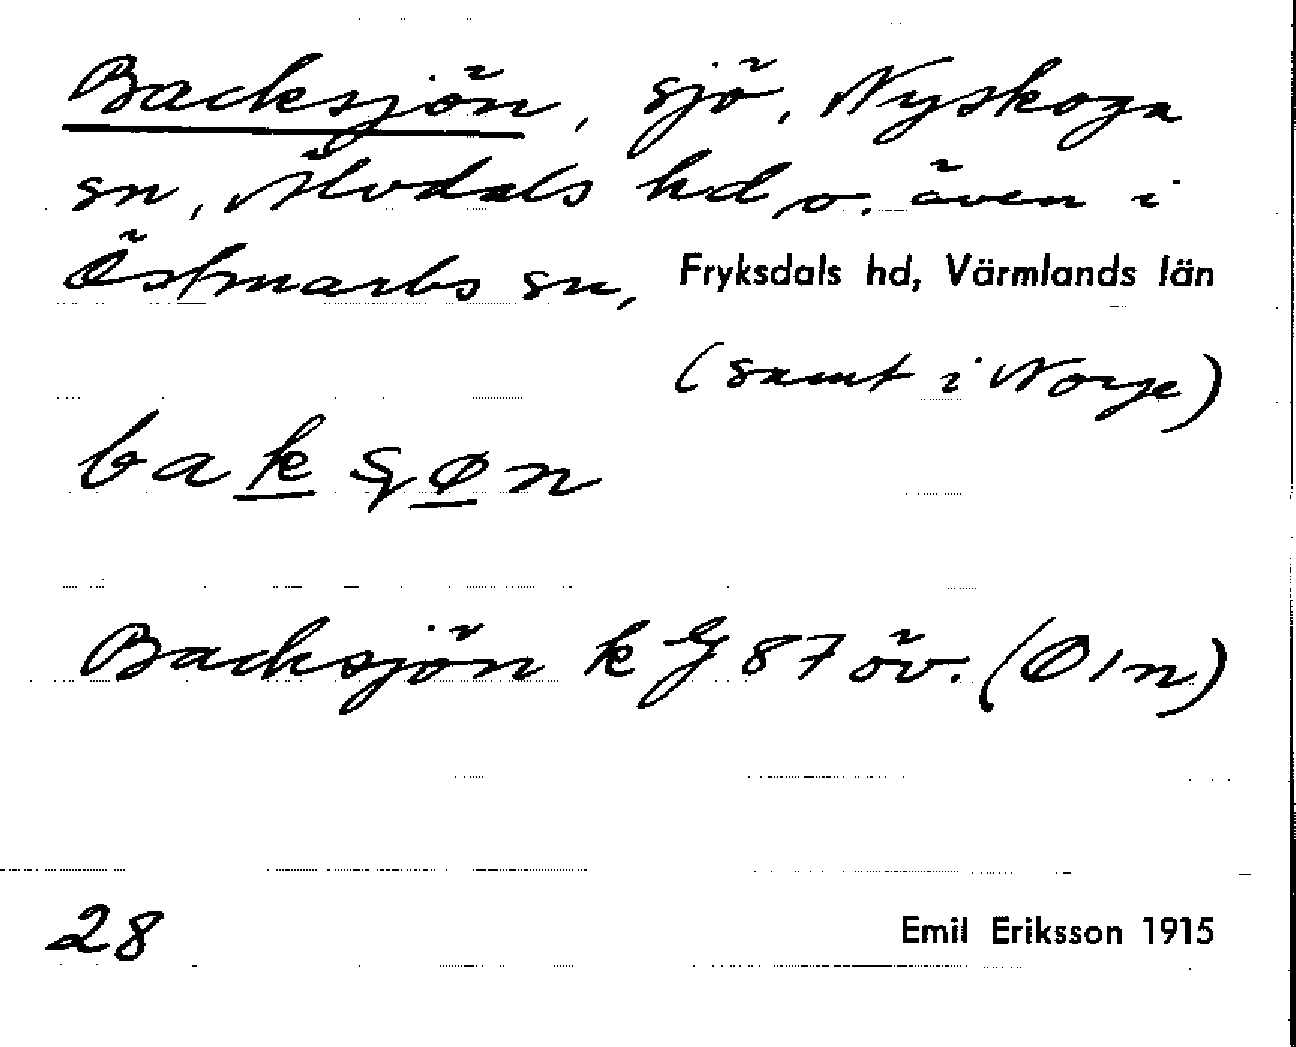 Backsjön, sjö, Nyskoga
sn, Älvdals hd, o. även i
Östmarks sn, Fryksdals hd, Värmlands län
(samt i Norge)
Backsjön k G 87 öv. (Ö 1 n)
28 Emil Eriksson 1915